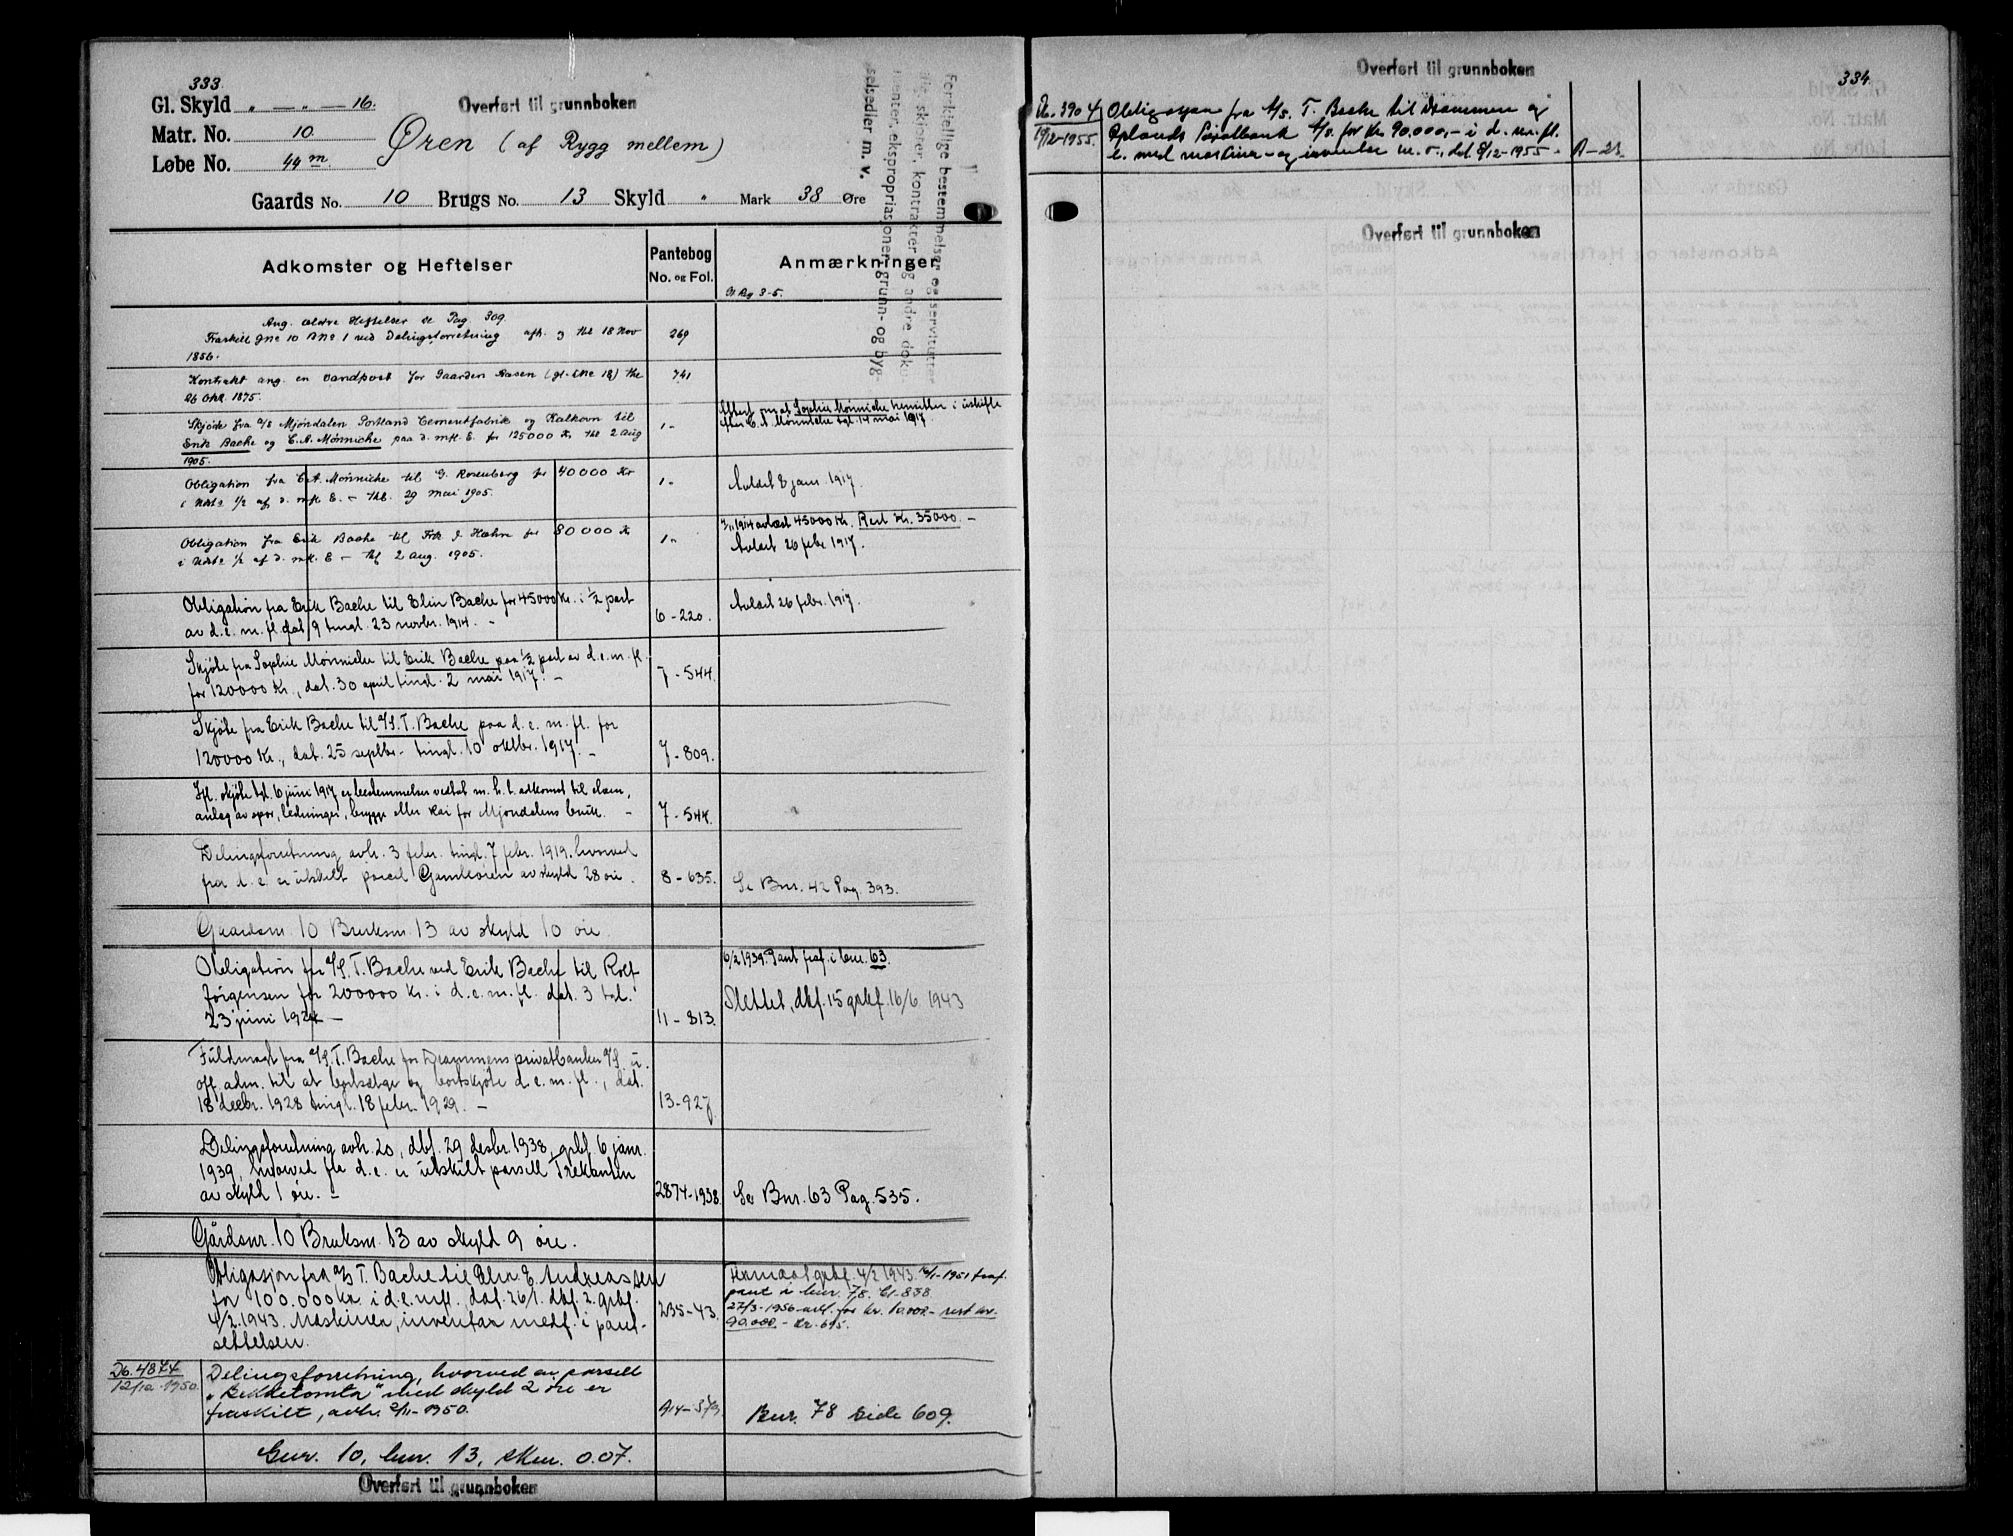 333.
Gl. Skyld " — " — 16.
Overført til grunnboken
Matr. No. 10
Øren (af Rygg mellem)
Løbe No. 44 m.
Gaards No. 10 Brugs No. 13 Skyld " Mark 38 Øre
Forskjellige bestemmelser og servitutter
skjøner, kontrakter og andre doku
menter, ekspropriasjoner, grunn- og byg-
selsedler m. v.
Adkomster og Heftelser
Pantebog
No. og Fol.
Anmærkninger
Ang. ældre Heftelser se Pag. 309.
Fraskilt Gno 10 Bno 1 ved Delingsforretning afh. og thl 18 Nov
1856.
269
Kontrakt ang. en vandpost for Gaarden Aasen (gl. Lno 18) thl
26 Okt. 1875.
741
Skjøde fra A/S Mjøndalen Portland Cementfabrik og Kalkovn til
Erik Bache og C. A. Mønniche paa d. mfl. E. for 125000 Kr. thl 2 Aug
1905.
Attest om at Sophie Mønniche hensitter i uskifte
efter C. A. Mønniche tgl. 14 mai 1917.
Obligation fra C. A. Mønniche til G. Rosenberg for 40000 Kr
i Udste 1/2 af d. mfl E. – thl. 29 Mai 1905.
Avlæst 8 jan. 1917.
Obligation fra Erik Bache til Frk J. Høhn for 80000 Kr
i Udste 1/2 af d. mfl. E – thl 2 Aug. 1905.
1914 avlæst 45000 Kr. Rest Kr. 35000. –
Avlæst 26 febr 1917.
Obligation fra Erik Bache til Elin Bache for 45000 Kr. i 1/2 part
av d. e. m. fl. dat. 9 tingl. 23 novbr. 1914. –
6 – 220.
Avlæst 26 febr. 1917.
Skjøte fra Sophie Mønniche til Erik Bache paa 1/2 part av d. e. m. fl.
for 120000 Kr., dat. 30 april tingl. 2 mai 1917. –
7 – 544.
Skjøte fra Erik Bache til A/S. T. Bache paa d. e. m. fl. for
120000 Kr., dat. 25 septbr. tingl. 10 oktbr. 1917. –
7 – 809.
Ifl. skjøte tgl. 6 juni 1917 er bestemmelser vedtat m. h. t. adkomst til elven,
anlæg av spor, ledninger, brygge eller kai for Mjøndalens bruk. –
7 – 544.
Delingsforretning avh. 3 febr. tingl. 7 febr. 1919. hvorved
fra d. e. er utskilt parcel Gamleøren av skyld 28 øre.
8 – 635.
Se Bnr. 42 Pag. 393.
Gaardsnr. 10 Bruksnr. 13 av skyld 10 øre.
Obligation fra A/S. T. Bache ved Erik Bache til Rolf
Jørgensen for 200000 Kr. i d. e. m. fl. dat. 3 tgl.
23 juni 1924 –
11 – 813.
6/2 1939. Pant fraf. i bnr. 63.
Slettet, dbf. 15 grbf. 16/6. 1943
Fuldmagt fra A/S. T. Bache for Drammens privatbanker A/S. u.
off. adm. til at bortsælge og bortskjøte d. e. m. fl., dat.
18 decbr. 1928 tingl. 18 febr. 1929. –
13 – 927
Delingsforretning avh. 20, dbf. 29 desbr. 1938, grbf. 6 janr.
1939, hvorved fra d. e. er utskilt parsell Trekanten
av skyld 1 øre. –
2874-1938.
Se Bnr. 63 Pag. 535.
Gårdsnr. 10 Bruksnr. 13 av skyld 9 øre.
Obligasjon fra A/S T. Bache til Elin E. Andreassen
for 100.000 kr. i d. e. mfl. dat. 26/1. dbf. 2. grbf.
4/2. 1943. Maskiner, inventar medf. i pant-
settelsen.
235 – 43.
grbf. 4/2 1943. 1951 fraf.
pant i bnr. 78. Cl-838
27/3-1956 avl. for kr. 10.000.- rest kr.
90.000.-
Db. 4874
12/12. 1950.
Delingsforretning, hvorved en parsell
"Bekketomta" med skyld 2 øre er
fraskilt, avh. 2/11-1950.
Bnr. 78 side 609.
Gnr. 10, bnr. 13, skm. 0.07.
Overført til grunnboken
Overført til grunnboken
334.
Db. 3904
19/12-1955.
Obligasjon fra A/S. T. Bache til Drammens og
Oplands Privatbank A/S. for kr. 90.000,- i d. m. fl.
e. med maskiner og inventar m. v., dat. 8/12-1955.
A – 23.
Overført til grunnboken